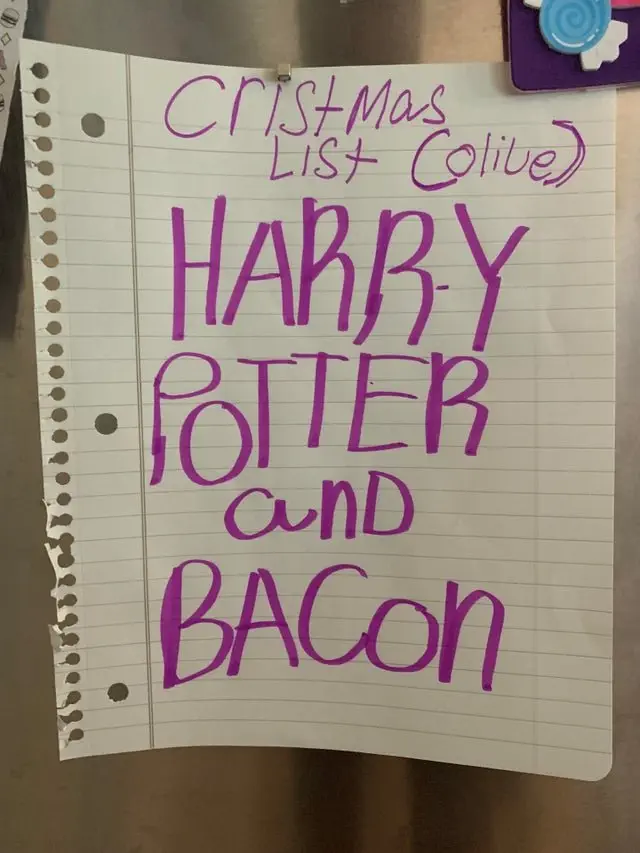 CristMas
List (olive)
HARRY
POTTER
and
BACon